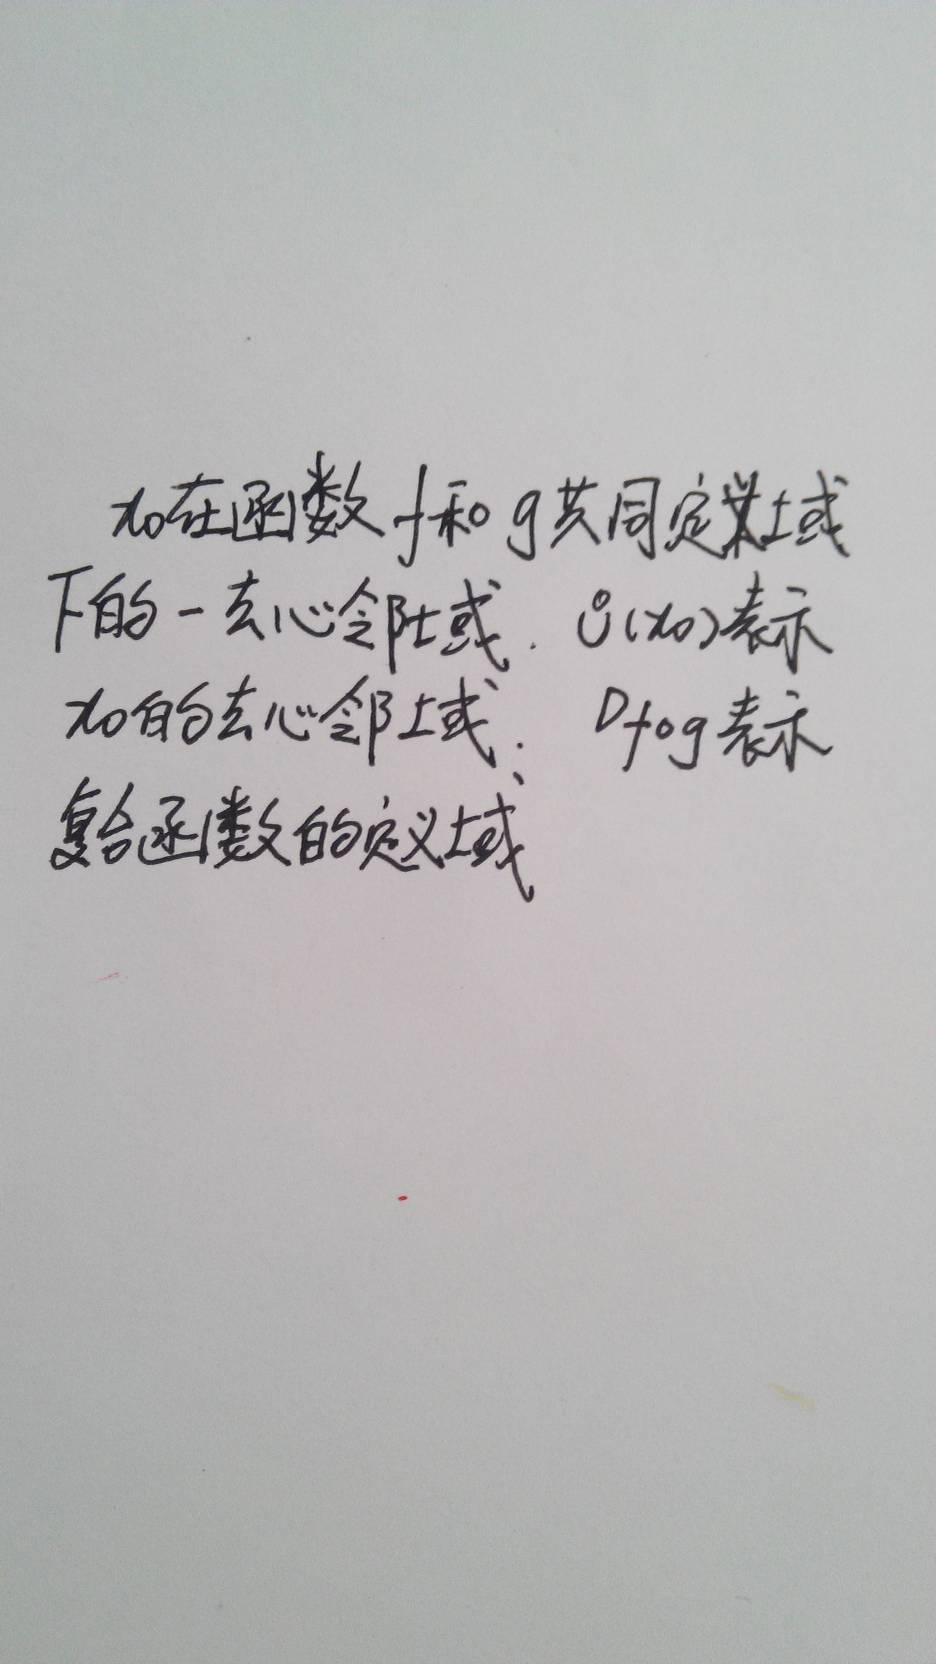 x₀在函数f和g共同定义域
下的一去心邻域. Ů(x₀)表示
x₀的去心邻域; Df∘g表示
复合函数的定义域